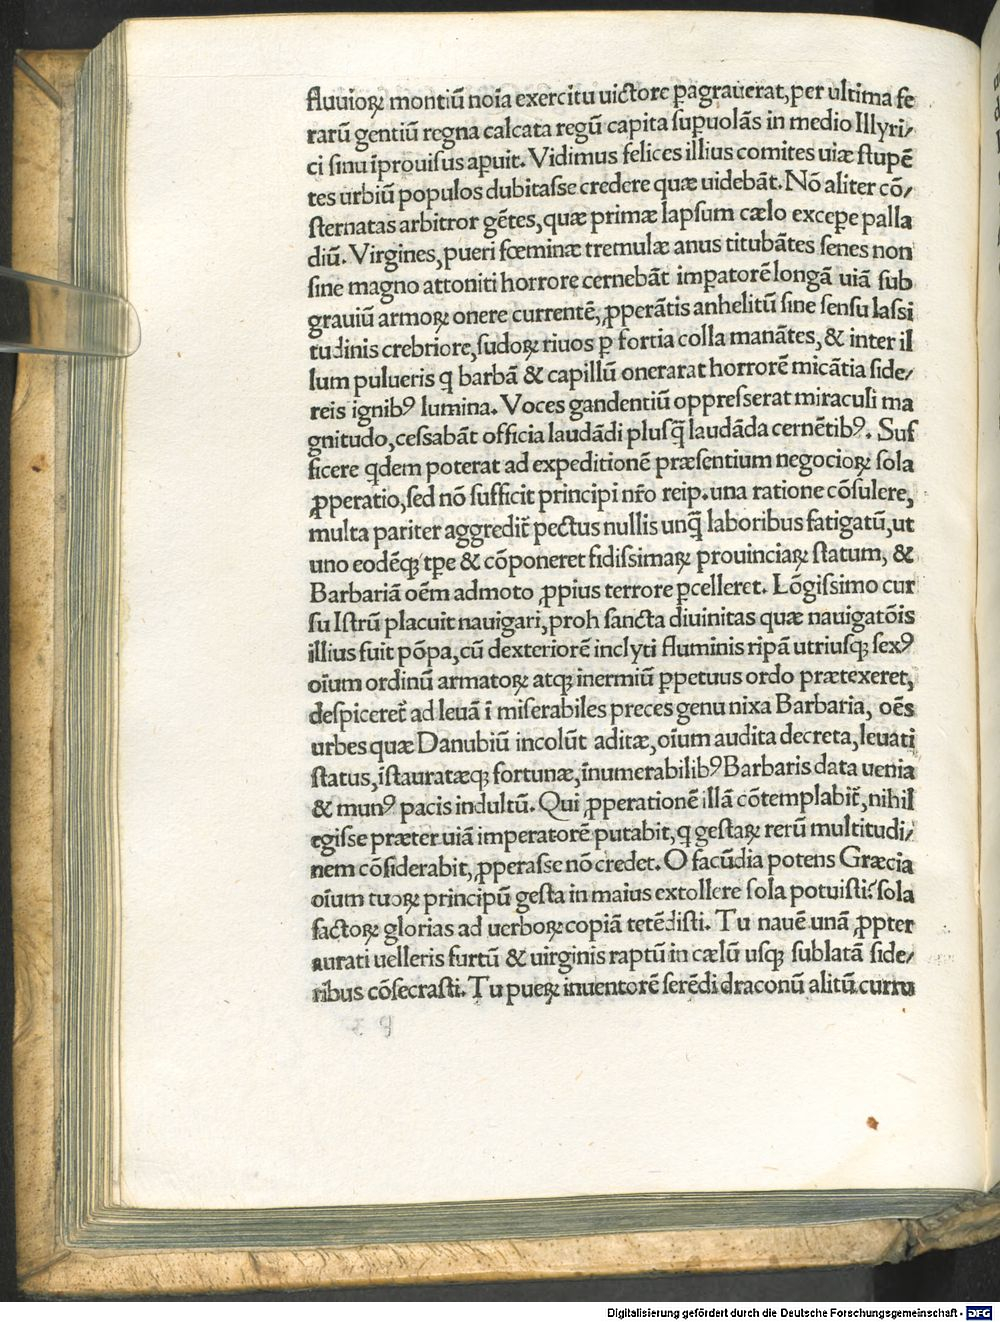 fluuioꝝ montiū noīa exercitu uictore ꝑagrauerat, per ultima fe
rarū gentiū regna calcata regū capita suꝑuolās in medio Illyri/
ci sinu īprouisus apuit. Vidimus felices illius comites uiæ stupē
tes urbiū populos dubitasse credere quæ uidebāt. Nō aliter cō/
sternatas arbitror gētes, quæ primæ lapsum cælo exceꝑe palla
diū. Virgines, pueri fœminæ tremulæ anus titubātes senes non
sine magno attoniti horrore cernebāt imꝑatorē longā uiā sub
grauiū armoꝝ onere currentē, ꝓperātis anhelitū sine sensu lassi
tudinis crebriore, sudoꝝ riuos ꝑ fortia colla manātes, & inter il
lum pulueris q barbā & capillū onerarat horrorē micātia side/
reis ignibꝰ lumina. Voces gandentiū oppresserat miraculi ma
gnitudo, cessabāt officia laudādi plusq̄ laudāda cernētibꝰ. Suf
ficere qdem poterat ad expeditionē præsentium negocioꝝ sola
ꝓperatio, sed nō sufficit principi nr̄o reip. una ratione cōsulere,
multa pariter aggredit̄ pectus nullis unq̄ laboribus fatigatū, ut
uno eodēqꝫ tꝑe & cōponeret fidissimaꝝ prouinciaꝝ statum, &
Barbariā oēm admoto ꝓpius terrore ꝑcelleret. Lōgissimo cur
su Istrū placuit nauigari, proh sancta diuinitas quæ nauigatōis
illius fuit pōpa, cū dexteriorē inclyti fluminis ripā utriusqꝫ sexꝰ
oīum ordinū armatoꝝ atqꝫ inermiū ꝑpetuus ordo prætexeret,
despiceret̄ ad leuā ī miserabiles preces genu nixa Barbaria, oēs
urbes quæ Danubiū incolūt aditæ, oīum audita decreta, leuati
status, īstauratæqꝫ fortunæ, īnumerabilibꝰ Barbaris data uenia
& munꝰ pacis indultū. Qui ꝓperationē illā cōtemplabit̄, nihil
egisse præter uiā imperatorē putabit, q gestaꝝ rerū multitudi/
nem cōsiderabit, ꝓperasse nō credet. O facūdia potens Græcia
oīum tuoꝝ principū gesta in maius extollere sola potuisti? sola
factoꝝ glorias ad uerboꝝ copiā tetēdisti. Tu nauē unā ꝓpter
aurati uelleris furtū & uirginis raptū in cælū usqꝫ sublatā side/
ribus cōsecrasti. Tu pueꝝ inuentorē serēdi draconū alitū curru
Digitalisierung gefördert durch die Deutsche Forschungsgemeinschaft - DFG